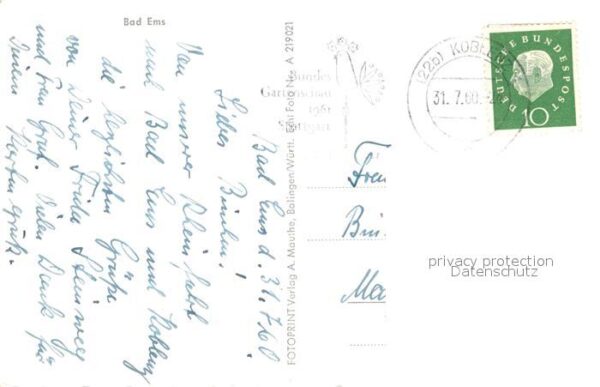 Bad Ems
Bad Ems d. 31.7.60
Liebes Binchen!
Von unserer Rheinfahrt
nach Bad Ems und Koblenz
die herzlichsten Grüße
von Deiner Frida Steinweg
und Frau Graf. Vielen Dank für
Deine Kartengrüße.
FOTOPRINT Verlag A. Mauthe, Balingen/Württ. Echt Foto Nr. A 219021
Bundes
Gartenschau
1961
Stuttgart
(22b) KOBLE
31.7.60
DEUTSCHE BUNDESPOST
10
privacy protection
Datenschutz